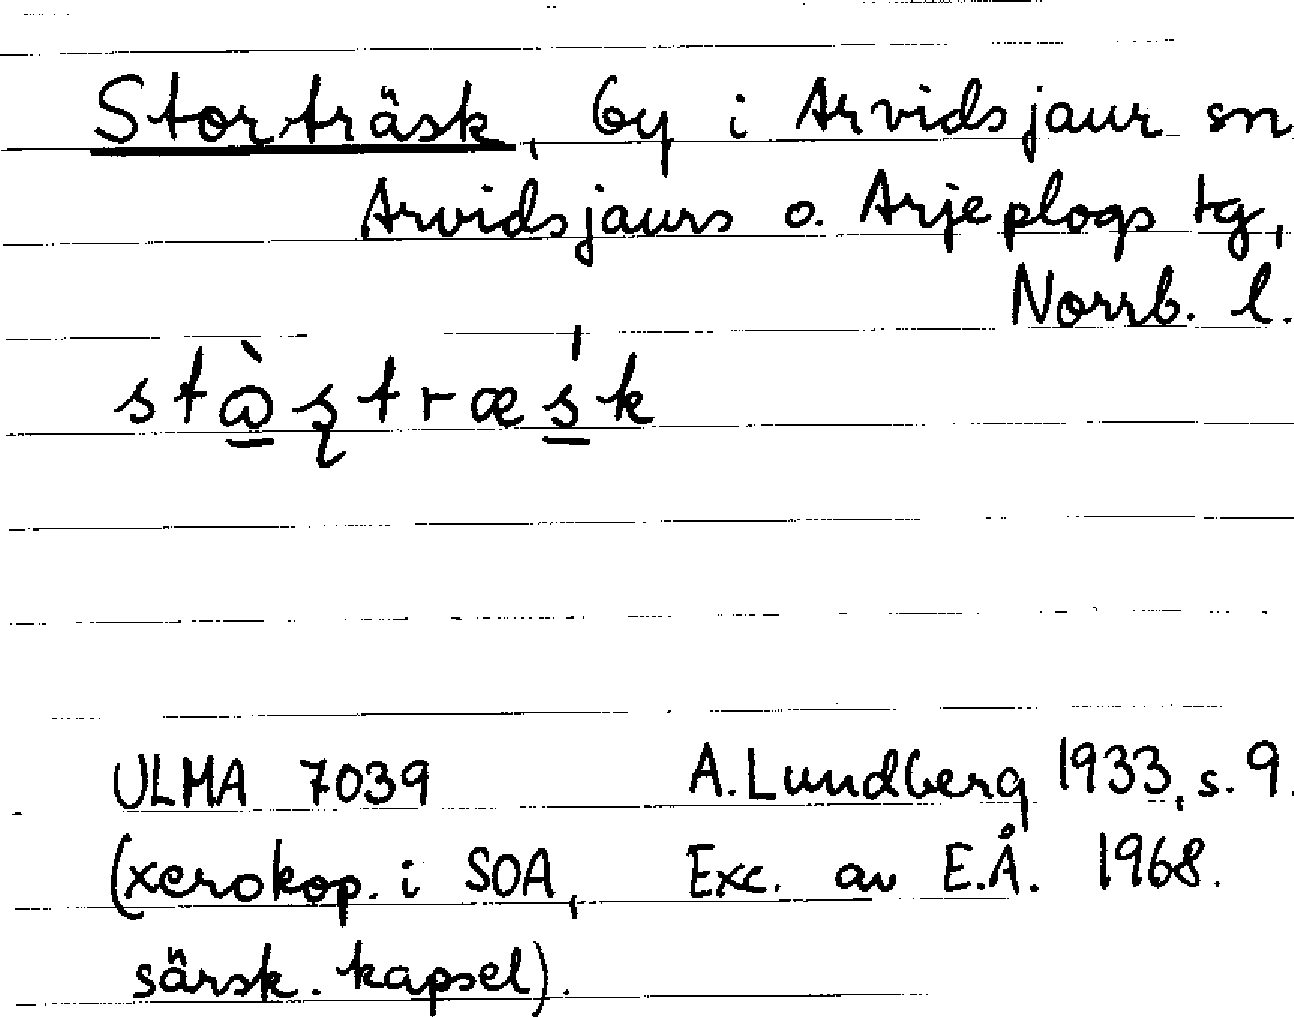 Storträsk, by i Arvidsjaur sn
Arvidsjaurs o. Arjeplogs tg,
Norrb. l.
ULMA 7039 A. Lundberg 1933, s. 9.
(xerokop. i SOA, Exc. av E.Å. 1968.
särsk. kapsel).